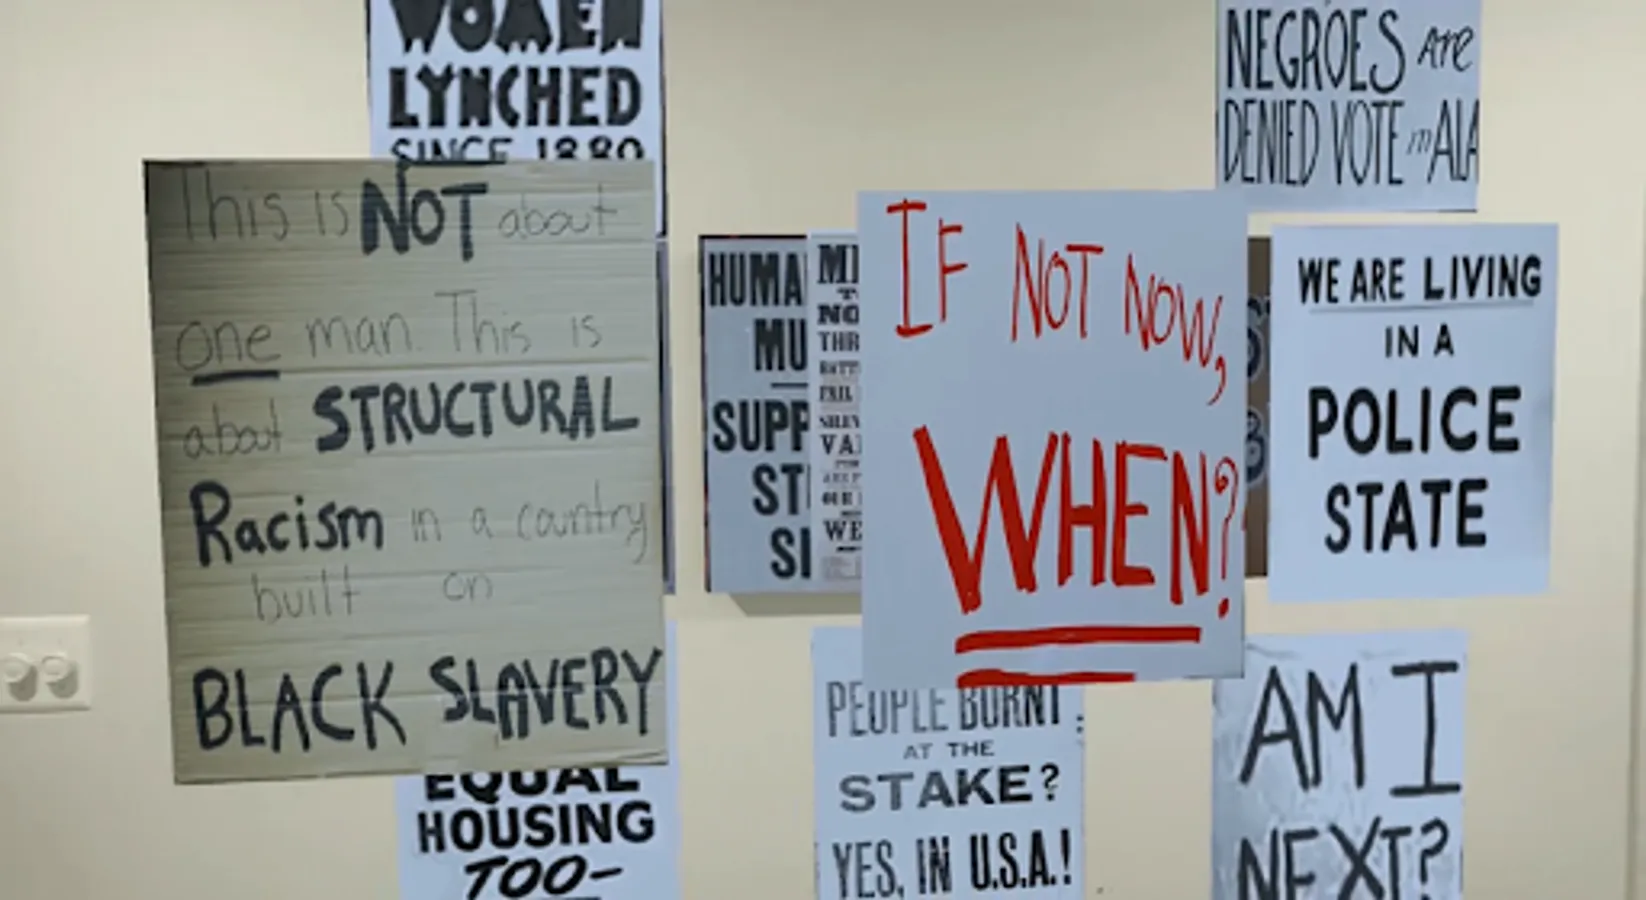 WOMEN
LYNCHED
SINCE 1880
NEGROES are
DENIED VOTE in ALA
This is NOT about
one man. This is
about STRUCTURAL
Racism in a country
built on
BLACK SLAVERY
HUMA
MU
SUPP
ST
SI
MI
TO
NO
THR
VA
OUR
WE
IF NOT NOW,
WHEN?
WE ARE LIVING
IN A
POLICE
STATE
EQUAL
HOUSING
TOO-
PEOPLE BURNT
AT THE
STAKE?
YES, IN U.S.A.!
AM I
NEXT?